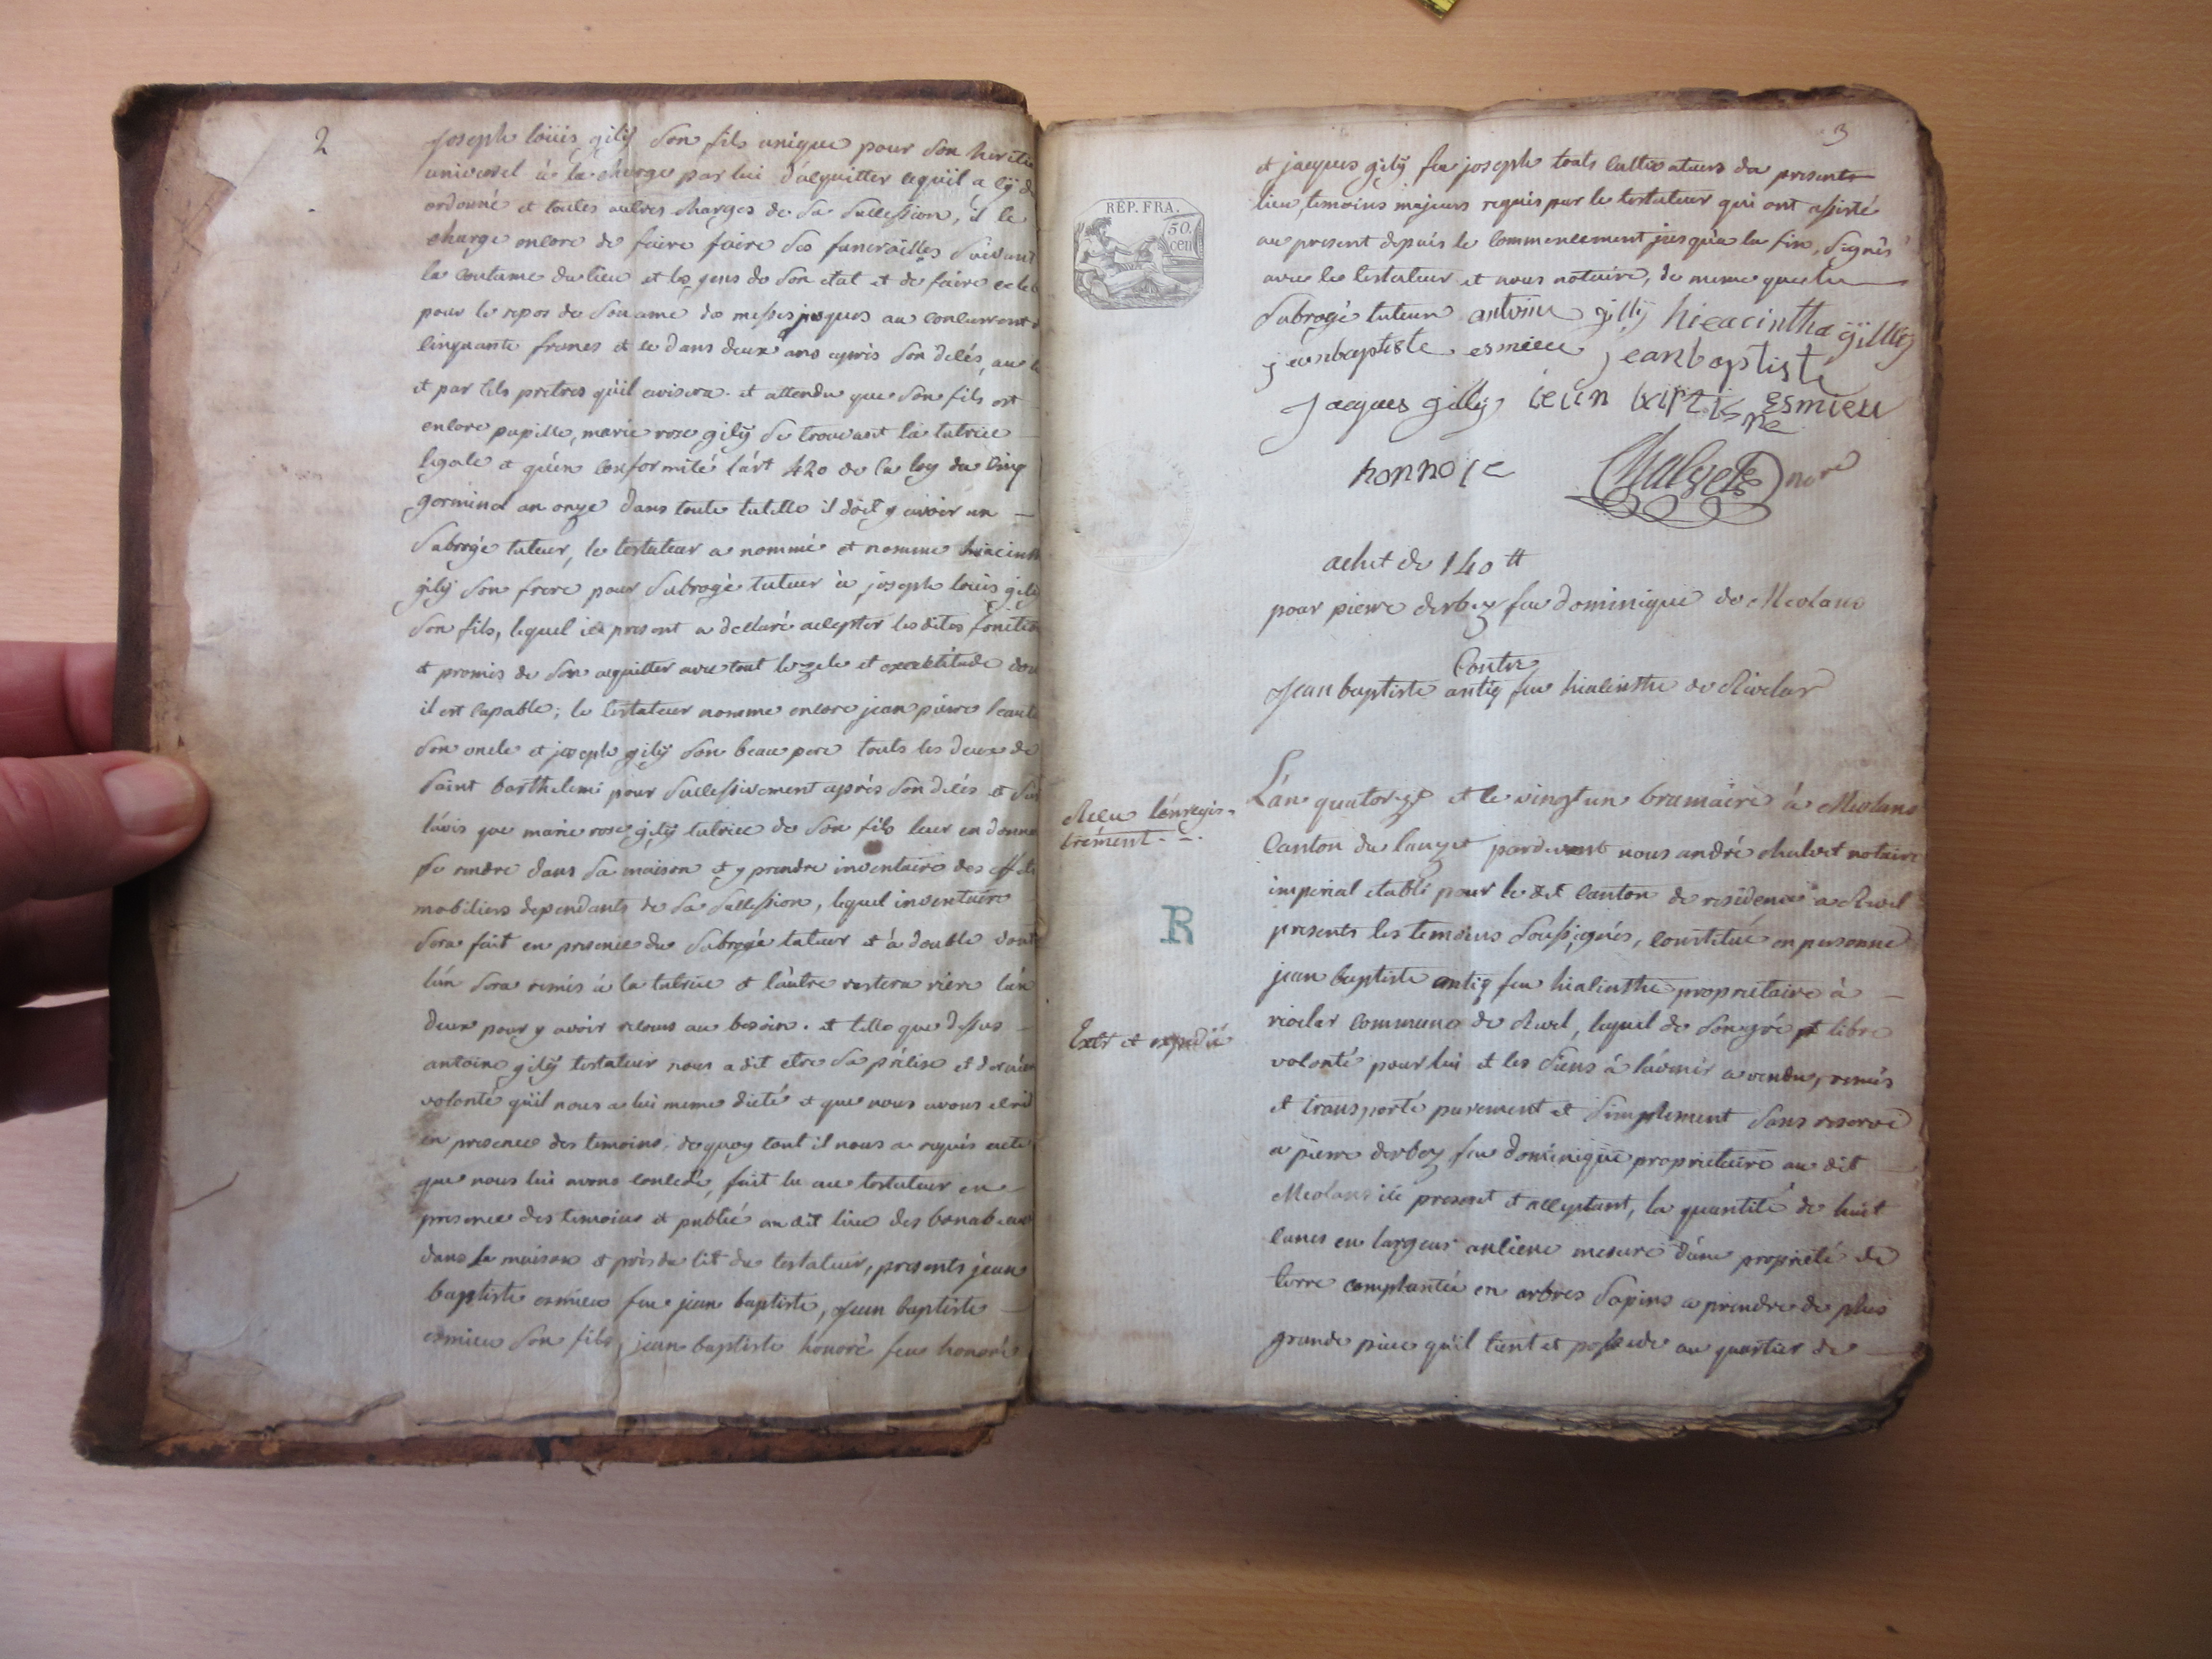 2
joseph loüis gilÿ son fils unique pour son heritie
universel à la charge par lui d'acquitter ce qu'il a cÿ d
ordonné et toutes autres charges de sa succession, il le
charge encore de faire faire ses funerailles suivant
la coutume du lieu et les gens de son etat et de faire celeb
pour le repos de son ame de messes jusques au concurrent d
cinquante francs et ce dans deux ans aprés son decés, au l
et par tels pretres qu'il avisera. et attendu que son fils est
encore pupille, marie rose gilÿ se trouvant la tutrice
legale et qu'en conformité l'art 420 de la loy du cinq
germinal an onze dans toute tutelle il doit y avoir un
subrogé tuteur, le testateur a nommé et nomme hiacinth
gilÿ son frere pour subrogé tuteur à joseph loüis gilÿ
son fils, lequel ici present a declaré accepter lesdites fonction
et promis de s'en acquitter avec tout le zele et exactitude don
il est capable; le testateur nomme encore jean pierre
son oncle et joseph gilÿ son beau pere touts les deux de
saint barthelemi pour successivement aprés son decés et sur
l'avis que marie rose gilÿ tutrice de son fils leur en donne
se rendre dans sa maison et y prendre inventaire des effets
mobiliers dependants de sa succession, lequel inventaire
sera fait en presence du subrogé tuteur et à double dont
l'un sera remis à la tutrice et l'autre restera riere l'un
deux pour y avoir recours au besoin. et telle que dessus
antoine gilÿ testateur nous a dit etre sa précise et dernier
volonté qu'il nous a lui meme dicté et que nous avons ecrit
en presence des temoins. de quoy tout il nous a requis acte
que nous lui avons concedé, fait lu au testateur en
presence des temoins et publié au dit lieu des bonabeaux
dans la maison et près du lit du testateur, presents jean
baptiste esmieu feu jean baptiste, jean baptiste
esmieu son fils, jean baptiste honoré feu honoré
3
et jacques gilÿ feu joseph touts cultivateurs du present
lieu, temoins majeurs requis par le testateur qui ont assisté
au present depuis le commencement jusqu'a la fin, signés
avec le testateur et nous notaire, de meme que le
subrogé tuteur antoine gillÿ hieacintha gillÿ
jeanbaptiste esmieu jeanbaptiste
Jacques gillÿ jean baptiste esmieu
honnore Chalvet nore
RÉP. FRA.
50.
cen
achet de 140 tt
pour pierre derbez feu dominique de Meolans
Contre
Jean baptiste antiq feu hiacinthe de Rioclar
Reçu l'enregis-
trement
R
Extt et expedié
L'an quatorze et le vingt un brumaire à Meolans
canton du lauzet pardevant nous andré chalvet notaire
imperial etabli pour le dit canton de residence a Revel
presents les temoins soussignés, constitué en personne
jean baptiste antiq feu hiacinthe proprietaire à
rioclar commune de Revel, lequel de son gré et libre
volonté pour lui et les siens à l'avenir a vendu, remis
et transporté purement et simplement sans reserve
a pierre derbez feu dominique proprietaire au dit
Meolans ici present et acceptant, la quantité de huit
canes en largeur anciene mesure d'une proprieté de
terre complantée en arbres sapins a prendre de plus
grande piece qu'il tient et possede au quartier de